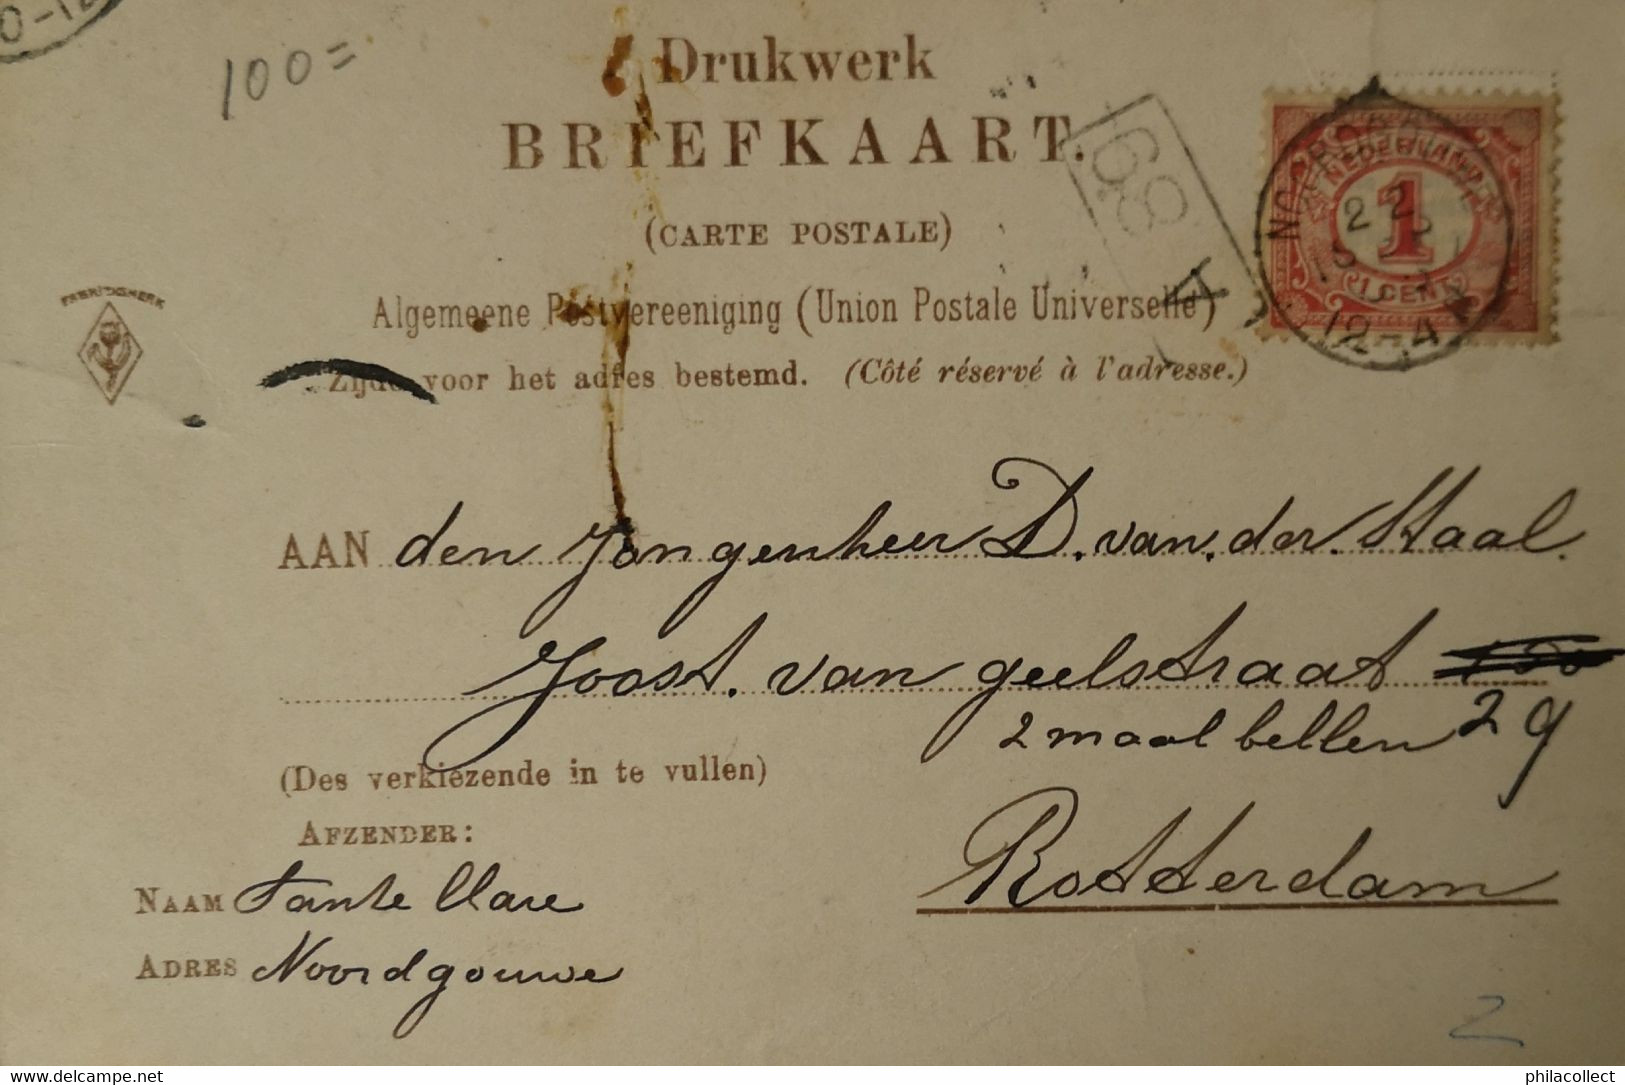 0-12
100=
Drukwerk
BRIEFKAART.
(CARTE POSTALE)
Algemeene Postvereeniging (Union Postale Universelle)
Zijde voor het adres bestemd. (Côté réservé à l'adresse.)
FABRIEKSMERK
68
A
NEDERLAND
1
1 CENT
12-4
AAN den Jongenheer D. van der Staal.
Joost van geelstraat
2 maal bellen 29
Rotterdam
(Des verkiezende in te vullen)
AFZENDER:
NAAM Tante Clare
ADRES Noordgouwe
Z
philacollect